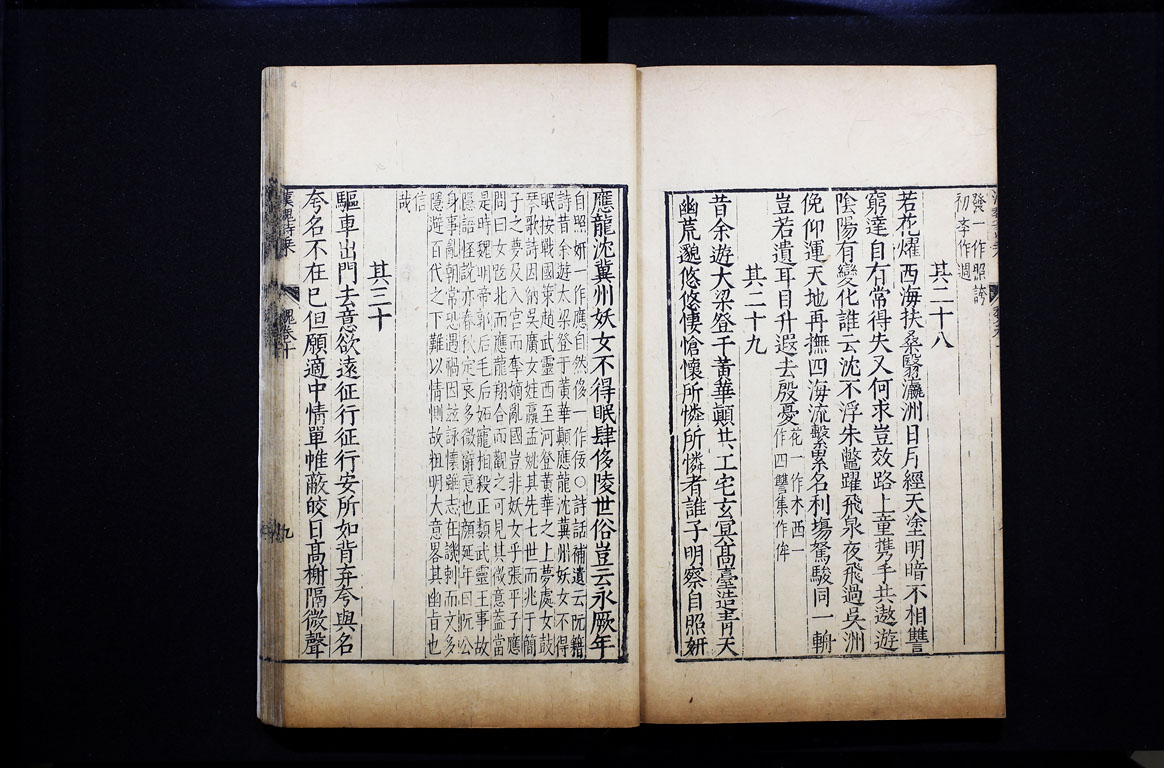 發一作照誇
初李作週
其二十八
若花燿西海扶桑翳瀛洲日月經天塗明暗不相讐
窮達自有常得失又何求豈效路上童携手共遨遊
陰陽有變化誰云沈不浮朱鼈躍飛泉夜飛過吳洲
俛仰運天地再撫四海流繫累名利塲駑駿同一輈
豈若遺耳目升遐去殷憂花一作木西一
作四讐集作侔
其二十九
昔余遊大梁登于黃華顚共工宅玄冥高臺造青天
幽荒邈悠悠悽愴懷所憐所憐者誰子明察自照妍
應龍沈冀州妖女不得眠肆侈陵世俗豈云永厥年
自照妍一作應自然侈一作侫〇詩話補遺云阮籍
詩昔余遊太梁登于黃華顚應龍沈冀州妖女不得
眠按戰國策趙武靈西至河登黃華之上夢處女鼓
琴歌詩因納吳廣女娃嬴孟姚其先七世而兆于簡
子之夢及入宫而奪嫡亂國豈非妖女乎張平子應
問曰女魃北而應龍翔合而觀之可見其微意蓋當
是時魏明帝郭后毛后妬寵相殺正類武靈王事故
隱語怪說亦春秋定哀多微辭意也顏延年曰阮公
身事亂朝常恐遇禍因兹詠懷雖志在譏刺而文多
隱避百代之下難以情測故粗明大意畧其幽旨也
信
哉
其三十
驅車出門去意欲遠征行征行安所如背弃夸與名
夸名不在已但願適中情單帷蔽皎日高榭隔微聲
漢魏詩乘
魏卷十
九